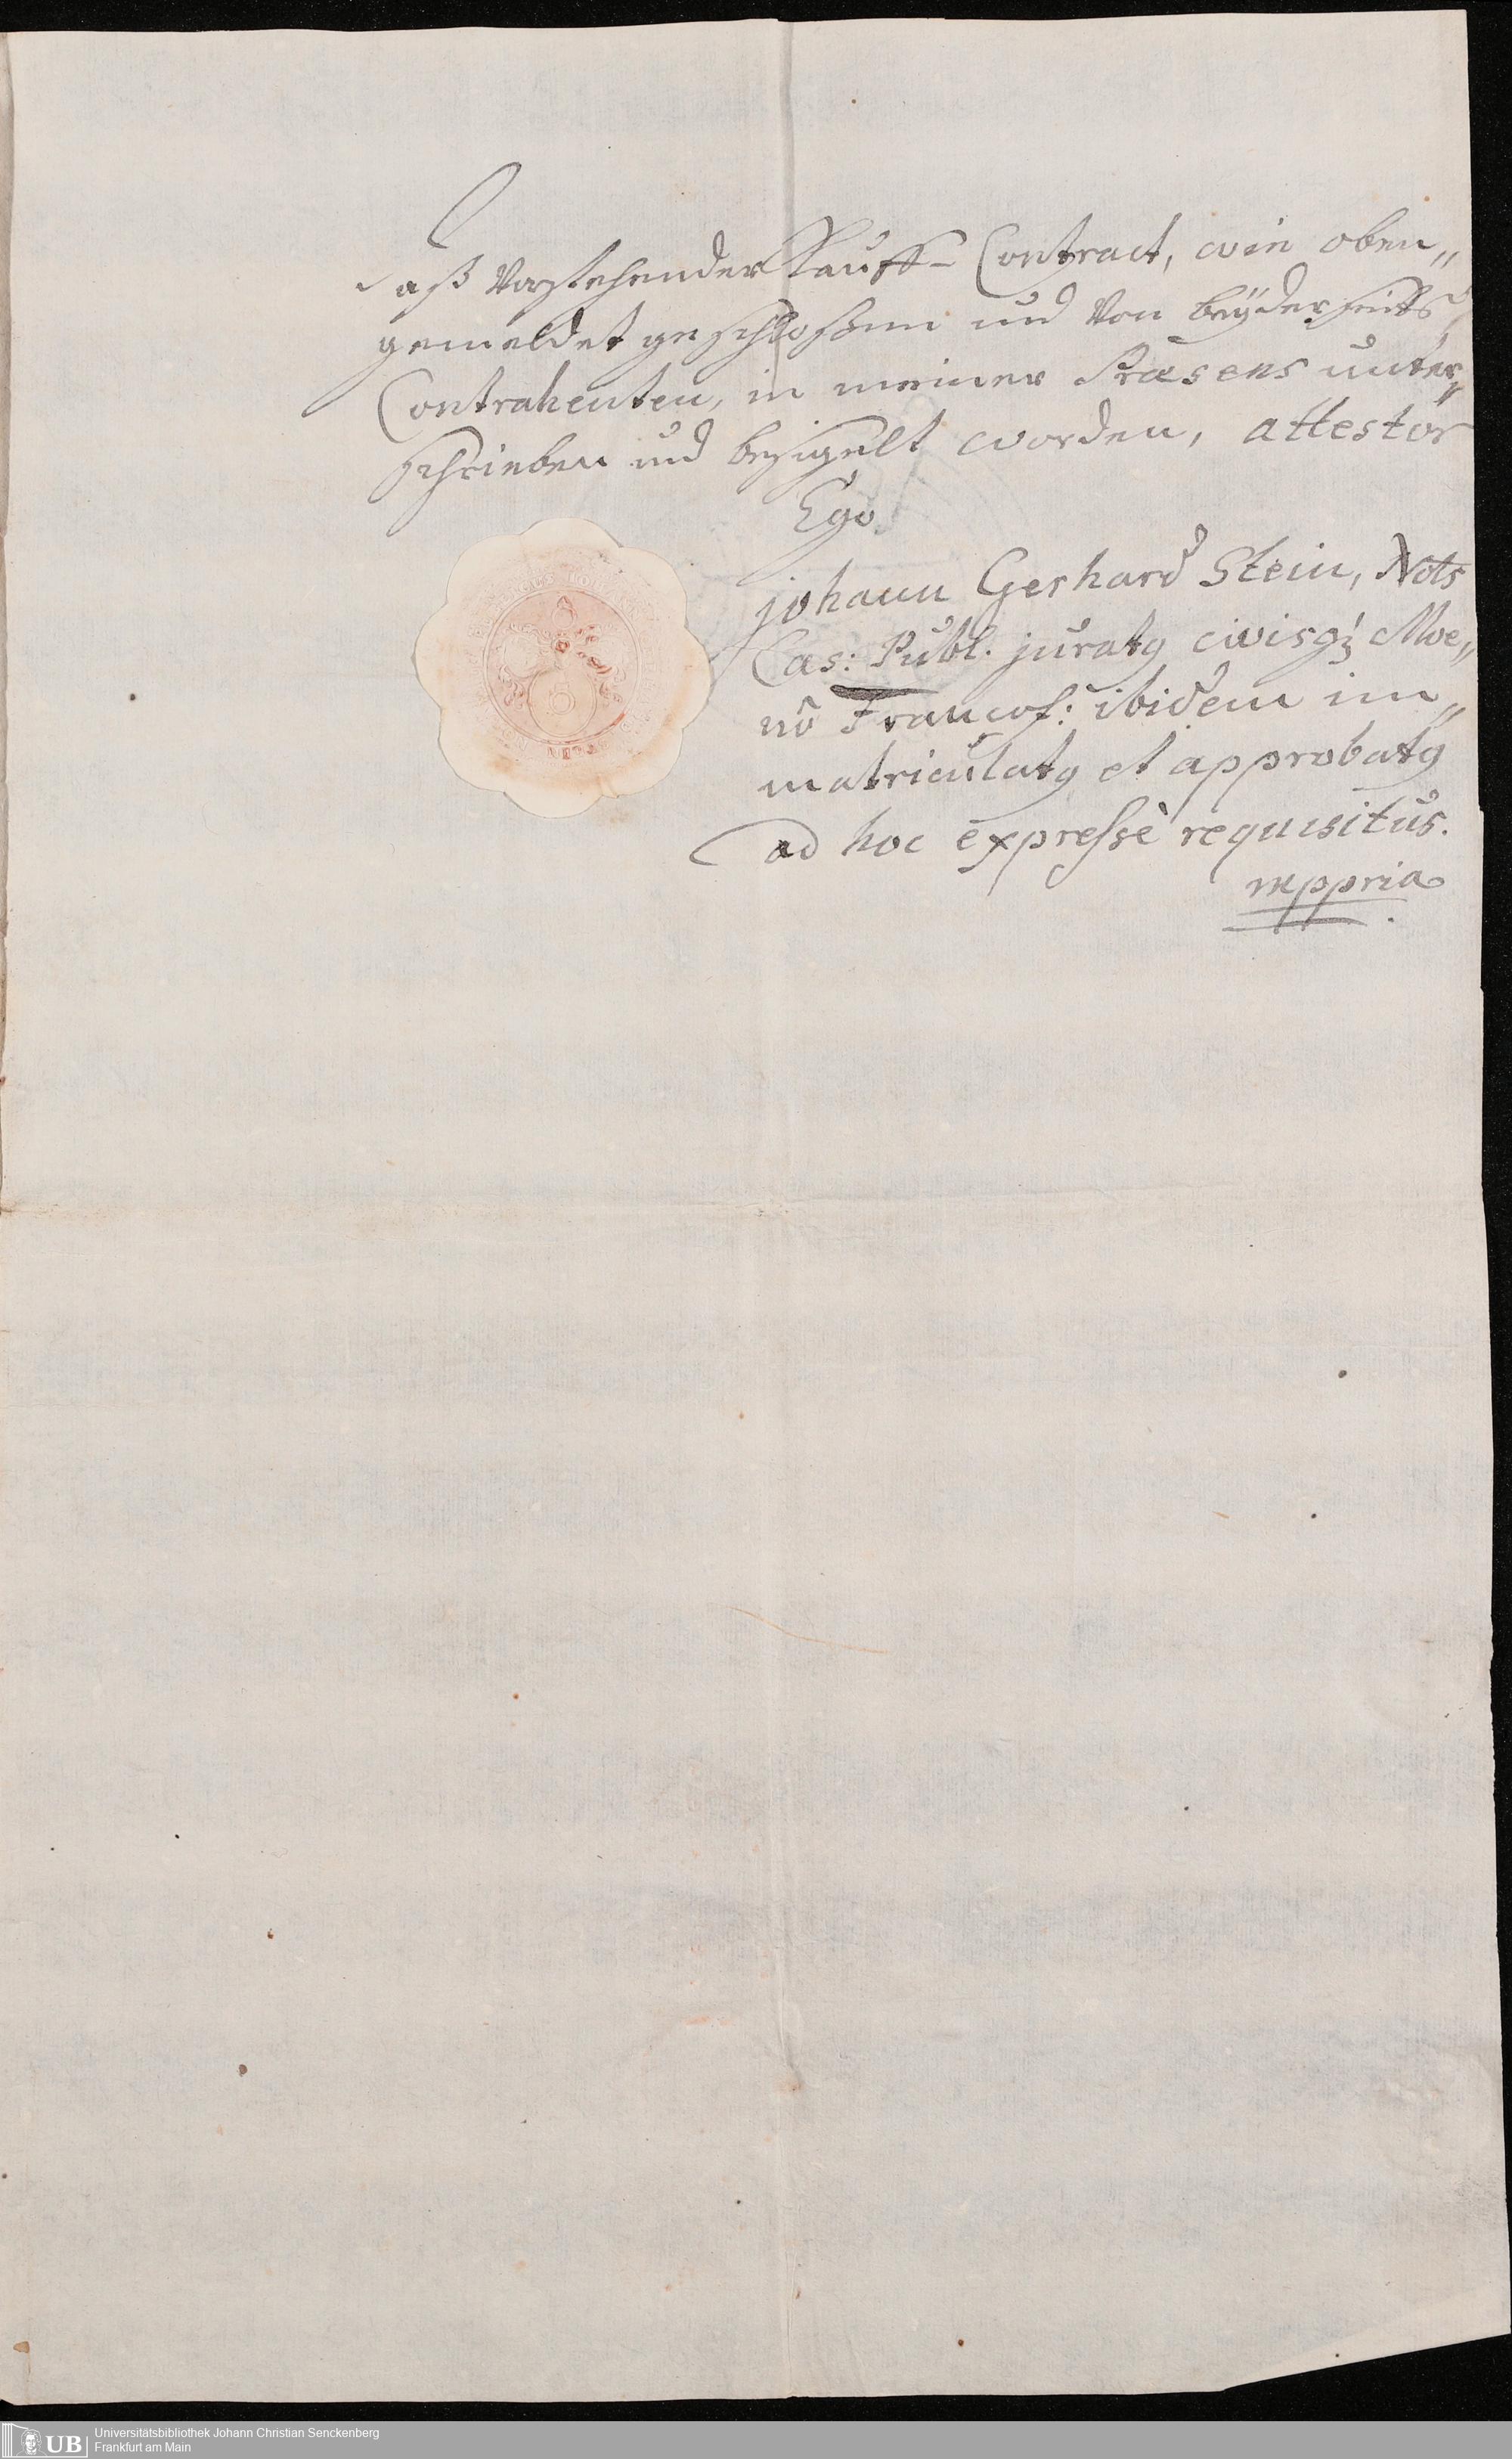 Daß Vorstehender Kauff- Contract, wie oben„
gemeldet geschloßen und von beÿderseits
Contrahenten, in meiner Præsens unter„
schrieben und besigelt worden, attestor
Ego
johann Gerhard Stein, Nots
Cæs: Publ. juratꝰ civisqꝫ Moe„
nô Francof: ibidem im„
matriculatꝰ et approbatꝰ
ad hoc expresse requisitus.
mppria
UB
Universitätsbibliothek Johann Christian Senckenberg
Frankfurt am Main